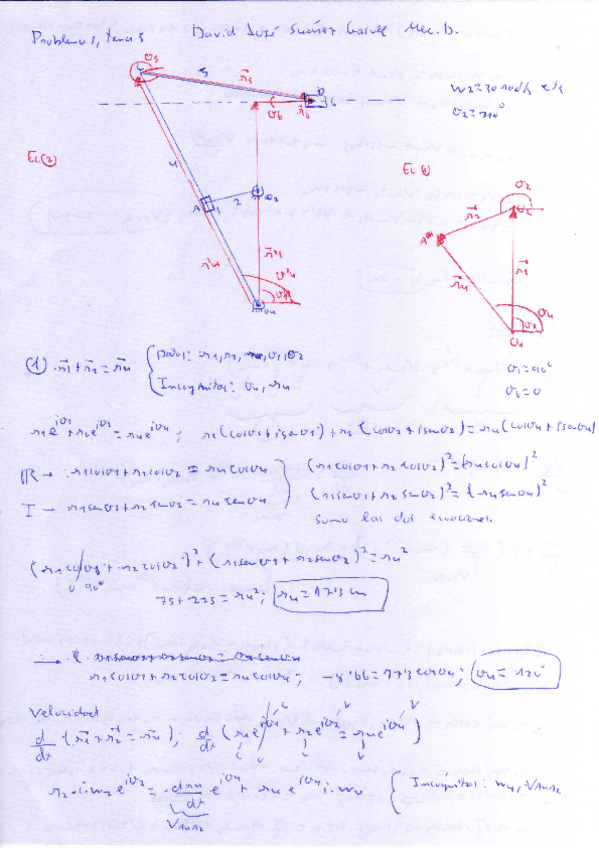 Problemas, tema 5 David José Suárez Mec. b.
θ2=210°
EC(2)
EC(1)
θ1=90°
(1) r1+r2=r4 { Datos: r1, r2, θ1, θ2
Incógnitas: θ4, r4
r1e^iθ1+r2e^iθ2=r4e^iθ4; r1(cosθ1+isenθ1)+r2(cosθ2+isenθ2)=r4(cosθ4+isenθ4)
R → r1cosθ1+r2cosθ2=r4cosθ4 } (r1cosθ1+r2cosθ2)²=(r4cosθ4)²
I → r1senθ1+r2senθ2=r4senθ4 (r1senθ1+r2senθ2)²=(r4senθ4)²
sumo las dos ecuaciones
(r1cosθ1+r2cosθ2)²+(r1senθ1+r2senθ2)²=r4²
0 90°
75+225=r4²; r4=17'3 cm
r1cosθ1+r2cosθ2=r4cosθ4; -8'66=17'3cosθ4; θ4=120°
Velocidad
d/dt (r1+r2=r4); d/dt (r1e^iθ1+r2e^iθ2=r4e^iθ4)
r2·i·w2e^iθ2=dr4/dt e^iθ4+r4e^iθ4·i·w4 { Incógnitas: w4, VA4A2
VA4A2